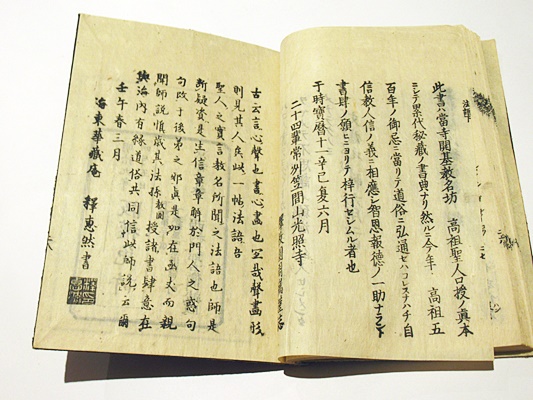 此書ハ當寺開基教名坊 高祖聖人口授ノ眞本
ニシテ累代秘藏ノ書典ナリ然ルニ今年 高祖五
百年ノ御忌ニ當リテ道俗ニ弘通セハコレスナハチ自
信教人信ノ義ニ相應シ智恩報德ノ一助ナラント
書肆ノ願ヒニヨリテ梓行セシムル者也
于時寶曆十一辛巳夏六月
二十四輩常州笠間山光照寺
古云言心聲也畫心畫也宜哉聲畫
則見其人矣 一帖法語吾
聖人之實言教名所聞之法語也師是
斷疑資是生信章章解於門人之惑句
句攻于後弟之邪眞是如在函丈而親
聞師說惟 其法孫 授諸書肆意在
與 內有緣道俗共同信此師說云爾
壬午春三月
海東華藏庵 釋惠然書